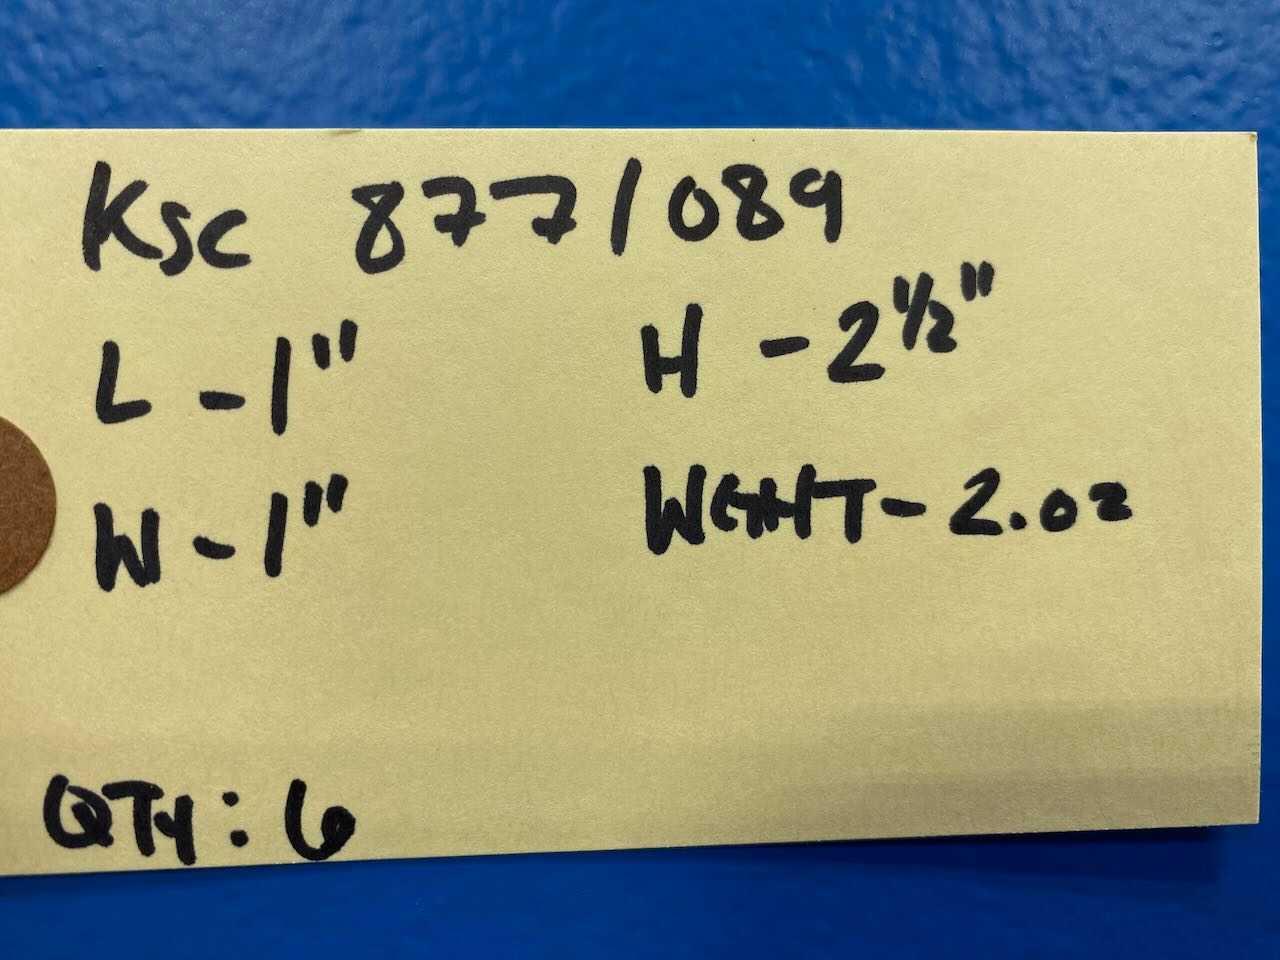 KSC 877/089
L - 1" H - 2 1/2"
W - 1" WGHT - 2.oz
QTY: 6